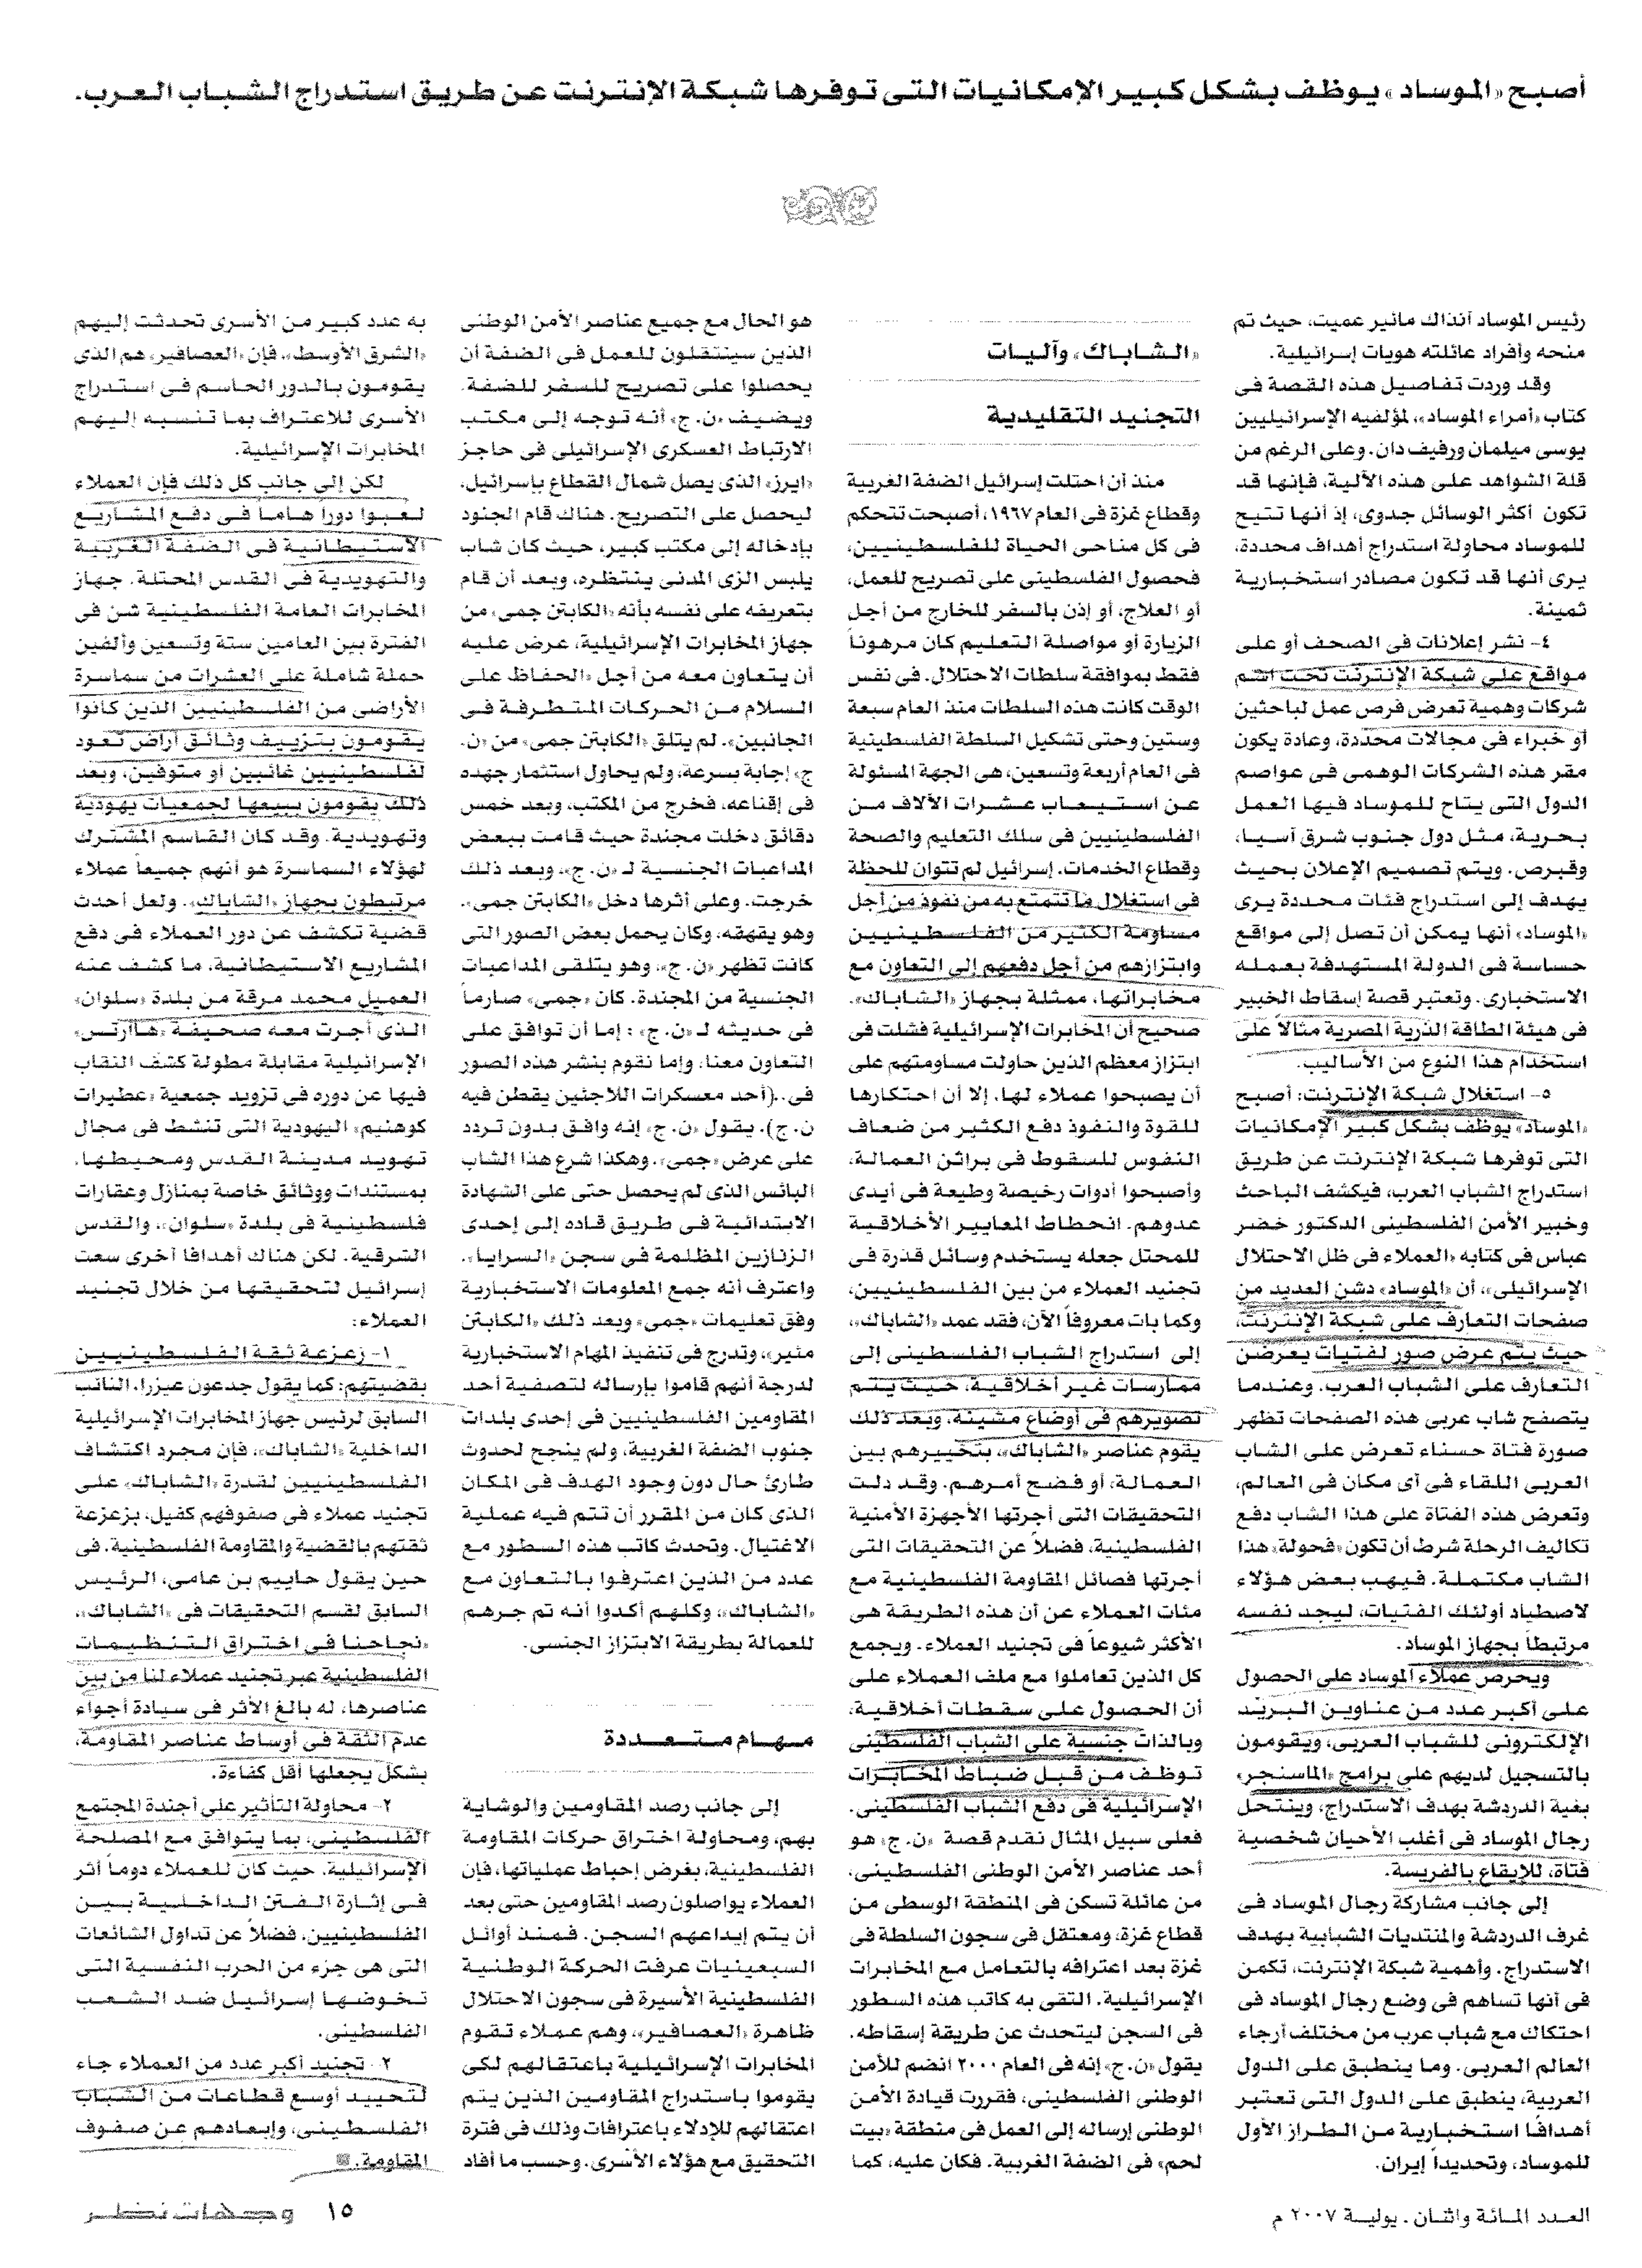 أصبح «الموساد» يوظف بشكل كبير الإمكانيات التى توفرها شبكة الإنترنت عن طريق استدراج الشباب العرب.
رئيس الموساد آنذاك مائير عميت، حيث تم
منحه وأفراد عائلته هويات إسرائيلية.
وقد وردت تفاصيل هذه القصة فى
كتاب «أمراء الموساد»، لمؤلفيه الإسرائيليين
يوسى ميلمان ورفيف دان. وعلى الرغم من
قلة الشواهد على هذه الآلية، فإنها قد
تكون أكثر الوسائل جدوى، إذ أنها تتيح
للموساد محاولة استدراج أهداف محددة،
يرى أنها قد تكون مصادر استخبارية
ثمينة.
٤- نشر إعلانات فى الصحف أو على
مواقع على شبكة الإنترنت تحت اسم
شركات وهمية تعرض فرص عمل لباحثين
أو خبراء فى مجالات محددة، وعادة يكون
مقر هذه الشركات الوهمى فى عواصم
الدول التى يتاح للموساد فيها العمل
بحرية، مثل دول جنوب شرق آسيا،
وقبرص. ويتم تصميم الإعلان بحيث
يهدف إلى استدراج فئات محددة يرى
«الموساد» أنها يمكن أن تصل إلى مواقع
حساسة فى الدولة المستهدفة بعمله
الاستخبارى. وتعتبر قصة إسقاط الخبير
فى هيئة الطاقة الذرية المصرية مثالاً على
استخدام هذا النوع من الأساليب.
٥- استغلال شبكة الإنترنت: أصبح
«الموساد» يوظف بشكل كبير الإمكانيات
التى توفرها شبكة الإنترنت عن طريق
استدراج الشباب العرب، فيكشف الباحث
وخبير الأمن الفلسطينى الدكتور خضر
عباس فى كتابه «العملاء فى ظل الاحتلال
الإسرائيلى»، أن «الموساد» دشن العديد من
صفحات التعارف على شبكة الإنترنت،
حيث يتم عرض صور لفتيات يعرضن
التعارف على الشباب العرب. وعندما
يتصفح شاب عربى هذه الصفحات تظهر
صورة فتاة حسناء تعرض على الشاب
العربى اللقاء فى أى مكان فى العالم،
وتعرض هذه الفتاة على هذا الشاب دفع
تكاليف الرحلة شرط أن تكون «فحولة» هذا
الشاب مكتملة. فيهب بعض هؤلاء
لاصطياد أولئك الفتيات، ليجد نفسه
مرتبطاً بجهاز الموساد.
ويحرص عملاء الموساد على الحصول
على أكبر عدد من عناوين البريد
الإلكترونى للشباب العربى، ويقومون
بالتسجيل لديهم على برامج «الماسنجر»
بغية الدردشة بهدف الاستدراج، وينتحل
رجال الموساد فى أغلب الأحيان شخصية
فتاة، للإيقاع بالفريسة.
إلى جانب مشاركة رجال الموساد فى
غرف الدردشة والمنتديات الشبابية بهدف
الاستدراج. وأهمية شبكة الإنترنت، تكمن
فى أنها تساهم فى وضع رجال الموساد فى
احتكاك مع شباب عرب من مختلف أرجاء
العالم العربى. وما ينطبق على الدول
العربية، ينطبق على الدول التى تعتبر
أهدافا استخبارية من الطراز الأول
للموساد، وتحديداً إيران.
«الشاباك» وآليات
التجنيد التقليدية
منذ أن احتلت إسرائيل الضفة الغربية
وقطاع غزة فى العام ١٩٦٧، أصبحت تتحكم
فى كل مناحى الحياة للفلسطينيين،
فحصول الفلسطينى على تصريح للعمل،
أو العلاج، أو إذن بالسفر للخارج من أجل
الزيارة أو مواصلة التعليم كان مرهوناً
فقط بموافقة سلطات الاحتلال. فى نفس
الوقت كانت هذه السلطات منذ العام سبعة
وستين وحتى تشكيل السلطة الفلسطينية
فى العام أربعة وتسعين، هى الجهة المسئولة
عن استيعاب عشرات الآلاف من
الفلسطينيين فى سلك التعليم والصحة
وقطاع الخدمات. إسرائيل لم تتوان للحظة
فى استغلال ما تتمتع به من نفوذ من أجل
مساومة الكثير من الفلسطينيين
وابتزازهم من أجل دفعهم إلى التعاون مع
مخابراتها، ممثلة بجهاز «الشاباك».
صحيح أن المخابرات الإسرائيلية فشلت فى
ابتزاز معظم الذين حاولت مساومتهم على
أن يصبحوا عملاء لها، إلا أن احتكارها
للقوة والنفوذ دفع الكثير من ضعاف
النفوس للسقوط فى براثن العمالة،
وأصبحوا أدوات رخيصة وطيعة فى أيدى
عدوهم. انحطاط المعايير الأخلاقية
للمحتل جعله يستخدم وسائل قذرة فى
تجنيد العملاء من بين الفلسطينيين،
وكما بات معروفاً الآن، فقد عمد «الشاباك»،
إلى استدراج الشباب الفلسطينى إلى
ممارسات غير أخلاقية، حيث يتم
تصويرهم فى أوضاع مشينة، وبعد ذلك
يقوم عناصر «الشاباك»، بتخييرهم بين
العمالة، أو فضح أمرهم. وقد دلت
التحقيقات التى أجرتها الأجهزة الأمنية
الفلسطينية، فضلاً عن التحقيقات التى
أجرتها فصائل المقاومة الفلسطينية مع
مئات العملاء عن أن هذه الطريقة هى
الأكثر شيوعاً فى تجنيد العملاء. ويجمع
كل الذين تعاملوا مع ملف العملاء على
أن الحصول على سقطات أخلاقية،
وبالذات جنسية على الشباب الفلسطينى
توظف من قبل ضباط المخابرات
الإسرائيلية فى دفع الشباب الفلسطينى.
فعلى سبيل المثال نقدم قصة «ن. ج» هو
أحد عناصر الأمن الوطنى الفلسطينى،
من عائلة تسكن فى المنطقة الوسطى من
قطاع غزة، ومعتقل فى سجون السلطة فى
غزة بعد اعترافه بالتعامل مع المخابرات
الإسرائيلية. التقى به كاتب هذه السطور
فى السجن ليتحدث عن طريقة إسقاطه.
يقول «ن. ج» إنه فى العام ٢٠٠٠ انضم للأمن
الوطنى الفلسطينى، فقررت قيادة الأمن
الوطنى إرساله إلى العمل فى منطقة «بيت
لحم» فى الضفة الغربية. فكان عليه، كما
هو الحال مع جميع عناصر الأمن الوطنى
الذين سينتقلون للعمل فى الضفة أن
يحصلوا على تصريح للسفر للضفة.
ويضيف «ن. ج» أنه توجه إلى مكتب
الارتباط العسكرى الإسرائيلى فى حاجز
«ايرز» الذى يصل شمال القطاع بإسرائيل،
ليحصل على التصريح. هناك قام الجنود
بإدخاله إلى مكتب كبير، حيث كان شاب
يلبس الزى المدنى ينتظره، وبعد أن قام
بتعريفه على نفسه بأنه «الكابتن جمى» من
جهاز المخابرات الإسرائيلية، عرض عليه
أن يتعاون معه من أجل «الحفاظ على
السلام من الحركات المتطرفة فى
الجانبين». لم يتلق «الكابتن جمى» من «ن.
ج» إجابة بسرعة، ولم يحاول استثمار جهده
فى إقناعه، فخرج من المكتب، وبعد خمس
دقائق دخلت مجندة حيث قامت ببعض
المداعبات الجنسية لـ «ن. ج»، وبعد ذلك
خرجت. وعلى أثرها دخل «الكابتن جمى».
وهو يقهقه، وكان يحمل بعض الصور التى
كانت تظهر «ن. ج»، وهو يتلقى المداعبات
الجنسية من المجندة. كان «جمى» صارماً
فى حديثه لـ «ن. ج» : إما أن توافق على
التعاون معنا، وإما نقوم بنشر هذه الصور
فى..(أحد معسكرات اللاجئين يقطن فيه
ن. ج). يقول «ن. ج» إنه وافق بدون تردد
على عرض «جمى». وهكذا شرع هذا الشاب
البائس الذى لم يحصل حتى على الشهادة
الابتدائية فى طريق قاده إلى إحدى
الزنازين المظلمة فى سجن «السرايا».
واعترف أنه جمع المعلومات الاستخبارية
وفق تعليمات «جمى» وبعد ذلك «الكابتن
منير»، وتدرج فى تنفيذ المهام الاستخبارية
لدرجة أنهم قاموا بإرساله لتصفية أحد
المقاومين الفلسطينيين فى إحدى بلدات
جنوب الضفة الغربية، ولم ينجح لحدوث
طارئ حال دون وجود الهدف فى المكان
الذى كان من المقرر أن تتم فيه عملية
الاغتيال. وتحدث كاتب هذه السطور مع
عدد من الذين اعترفوا بالتعاون مع
«الشاباك»، وكلهم أكدوا أنه تم جرهم
للعمالة بطريقة الابتزاز الجنسى.
مهام متعددة
إلى جانب رصد المقاومين والوشاية
بهم، ومحاولة اختراق حركات المقاومة
الفلسطينية، بغرض إحباط عملياتها، فإن
العملاء يواصلون رصد المقاومين حتى بعد
أن يتم إيداعهم السجن. فمنذ أوائل
السبعينيات عرفت الحركة الوطنية
الفلسطينية الأسيرة فى سجون الاحتلال
ظاهرة «العصافير»، وهم عملاء تقوم
المخابرات الإسرائيلية باعتقالهم لكى
يقوموا باستدراج المقاومين الذين يتم
اعتقالهم للإدلاء باعترافات وذلك فى فترة
التحقيق مع هؤلاء الأسرى. وحسب ما أفاد
به عدد كبير من الأسرى تحدثت إليهم
«الشرق الأوسط»، فإن «العصافير» هم الذى
يقومون بالدور الحاسم فى استدراج
الأسرى للاعتراف بما تنسبه إليهم
المخابرات الإسرائيلية.
لكن إلى جانب كل ذلك فإن العملاء
لعبوا دوراً هاماً فى دفع المشاريع
الاستيطانية فى الضفة الغربية
والتهويدية فى القدس المحتلة. جهاز
المخابرات العامة الفلسطينية شن فى
الفترة بين العامين ستة وتسعين وألفين
حملة شاملة على العشرات من سماسرة
الأراضى من الفلسطينيين الذين كانوا
يقومون بتزييف وثائق أراض تعود
لفلسطينيين غائبين أو متوفين، وبعد
ذلك يقومون ببيعها لجمعيات يهودية
وتهويدية. وقد كان القاسم المشترك
لهؤلاء السماسرة هو أنهم جميعاً عملاء
مرتبطون بجهاز «الشاباك». ولعل أحدث
قضية تكشف عن دور العملاء فى دفع
المشاريع الاستيطانية، ما كشف عنه
العميل محمد مرقة من بلدة «سلوان»
الذى أجرت معه صحيفة «هاآرتس»
الإسرائيلية مقابلة مطولة كشف النقاب
فيها عن دوره فى تزويد جمعية «عطيرات
كوهنيم» اليهودية التى تنشط فى مجال
تهويد مدينة القدس ومحيطها،
بمستندات ووثائق خاصة بمنازل وعقارات
فلسطينية فى بلدة «سلوان»، والقدس
الشرقية. لكن هناك أهدافا أخرى سعت
إسرائيل لتحقيقها من خلال تجنيد
العملاء:
١- زعزعة ثقة الفلسطينيين
بقضيتهم: كما يقول جدعون عيزرا، النائب
السابق لرئيس جهاز المخابرات الإسرائيلية
الداخلية «الشاباك»، فإن مجرد اكتشاف
الفلسطينيين لقدرة «الشاباك» على
تجنيد عملاء فى صفوفهم كفيل، بزعزعة
ثقتهم بالقضية والمقاومة الفلسطينية. فى
حين يقول حاييم بن عامى، الرئيس
السابق لقسم التحقيقات فى «الشاباك»،
«نجاحنا فى اختراق التنظيمات
الفلسطينية عبر تجنيد عملاء لنا من بين
عناصرها، له بالغ الأثر فى سيادة أجواء
عدم الثقة فى أوساط عناصر المقاومة،
بشكل يجعلها أقل كفاءة.
٢- محاولة التأثير على أجندة المجتمع
الفلسطينى، بما يتوافق مع المصلحة
الإسرائيلية. حيث كان للعملاء دوماً أثر
فى إثارة الفتن الداخلية بين
الفلسطينيين، فضلاً عن تداول الشائعات
التى هى جزء من الحرب النفسية التى
تخوضها إسرائيل ضد الشعب
الفلسطينى.
٢- تجنيد أكبر عدد من العملاء جاء
لتحييد أوسع قطاعات من الشباب
الفلسطينى، وإبعادهم عن صفوف
المقاومة.
العدد المائة واثنان . يولية ٢٠٠٧ م
١٥ وجهات نظر